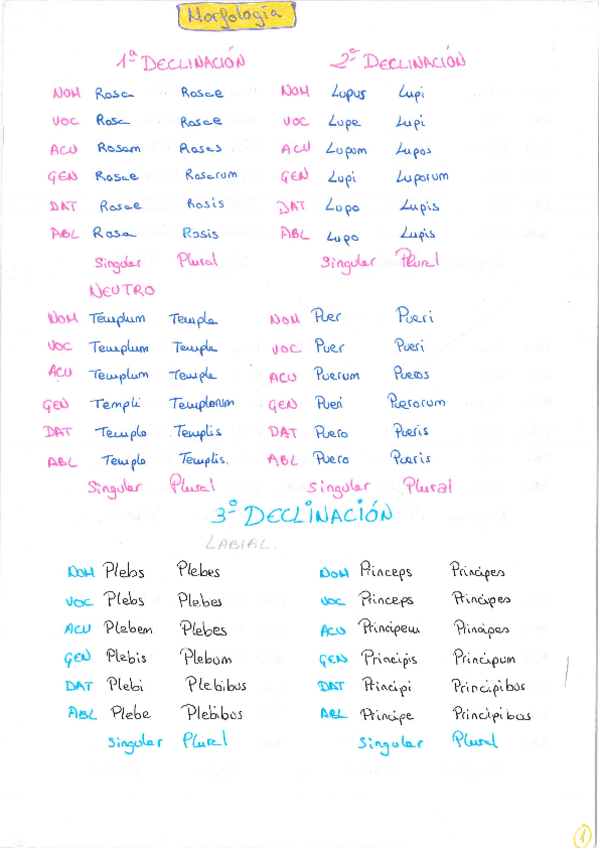 Morfología
1ª DECLINACIÓN 2º DECLINACIÓN
NOM Rosa Rosae NOM Lupus Lupi
VOC Rosa Rosae VOC Lupe Lupi
ACU Rosam Rosas ACU Lupum Lupos
GEN Rosae Rosarum GEN Lupi Luporum
DAT Rosae Rosis DAT Lupo Lupis
ABL Rosa Rosis ABL Lupo Lupis
Singular Plural Singular Plural
NEUTRO
NOM Templum Templa NOM Puer Pueri
VOC Templum Templa VOC Puer Pueri
ACU Templum Templa ACU Puerum Pueros
GEN Templi Templorum GEN Pueri Puerorum
DAT Templo Templis DAT Puero Pueris
ABL Templo Templis. ABL Puero Pueris
Singular Plural Singular Plural
3º DECLINACIÓN
LABIAL.
NOM Plebs Plebes NOM Princeps Principes
VOC Plebs Plebes VOC Princeps Principes
ACU Plebem Plebes ACU Principem Principes
GEN Plebis Plebum GEN Principis Principum
DAT Plebi Plebibus DAT Principi Principibus
ABL Plebe Plebibus ABL Principe Principibus
Singular Plural Singular Plural
1